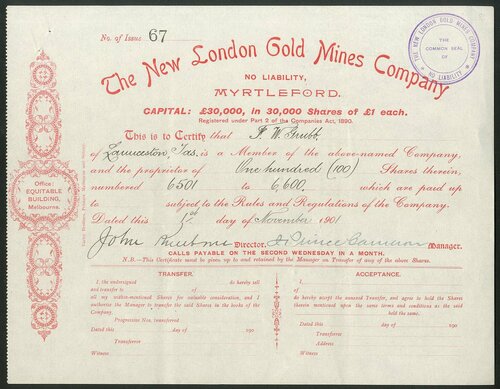 No. of Issue 67
The New London Gold Mines Company
NO LIABILITY,
MYRTLEFORD.
CAPITAL: £30,000, in 30,000 Shares of £1 each.
Registered under Part 2 of the Companies Act, 1890.
THE NEW LONDON GOLD MINES COMPANY
THE COMMON SEAL OF
NO LIABILITY
This is to Certify that F. W. Grubb
of Launceston, Tas. is a Member of the above-named Company,
and the proprietor of One hundred (100) Shares therein,
numbered 6501 to 6,600, which are paid up
to subject to the Rules and Regulations of the Company.
Dated this 1st day of November 1901
John Director. Manager.
Office:
EQUITABLE
BUILDING,
Melbourne.
CALLS PAYABLE ON THE SECOND WEDNESDAY IN A MONTH.
N.B.—This Certificate must be given up to and retained by the Manager on Transfer of any of the above Shares.
TRANSFER.
I, the undersigned do hereby sell
and transfer to
all my within-mentioned Shares for valuable consideration, and I
authorise the Manager to transfer the said Shares in the books of the
Company.
Progressive Nos. transferred
Dated this day of 190
Transferrer
Witness
ACCEPTANCE.
I, of
do hereby accept the annexed Transfer, and agree to hold the Shares
therein mentioned upon the same terms and conditions as the said
held the same.
Dated this day of 190
Transferree
Address
Witness